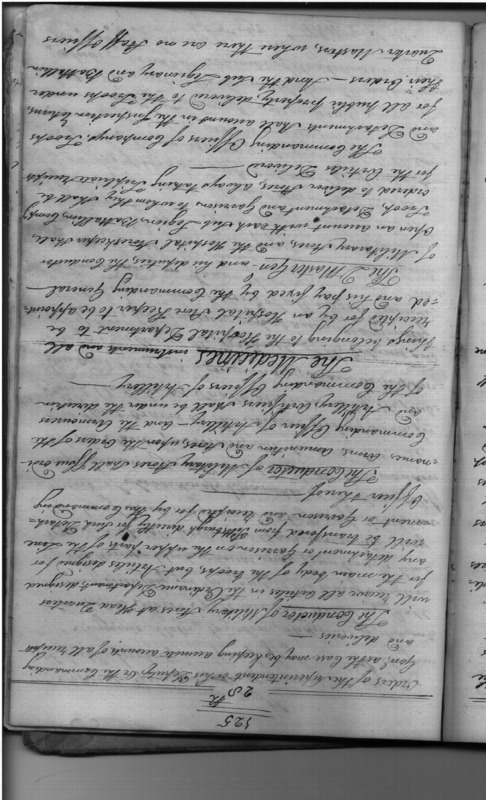 325
28th
Orders of the Superintendent or his Deputy, or the Commanding
Gen'l as the case may be, keeping accurate accounts of all receipts
and deliveries —
The Conductor of Military Stores at Head Quarters
will receive all Articles in the Ordnance Department, designed
for the main body of the troops, but Articles designed for
any detachment or Garrison on the upper parts of the
will be transfered from Pittsburgh direct for such Detach-
-ment or Garrison and receipted for by the Commanding
Officer thereof —
The Conductor of Military Stores shall Issue Ord-
-nance, Arms, Amunition and Stores, upon the Orders of the
Commanding Officer of Artillery — and the Armourers
and Artillery Artificers shall be under the direction
of the Commanding Officers of Artillery —
The Medicines, instruments and all
things belonging to the Hospital Department to be
receipted for by an Hospital Store Keeper to be appoint-
-ed and his pay fixed by the Commanding General —
The Q Master Gen and his deputies, the Conductor
of Military Stores, and the Hospital Storekeeper shall
open an account with each Sub Legion, Battallion, Comp,
Troop, Detachment and Garrison, to whom they shall be
ordered to deliver Stores, always taking Triplicate receipts
for the Articles Delivered —
The Commanding Officers of Companys, Troops
and Detachments shall account in the
for all public property delivered to the Troops under
their Orders — And the Sub Legionary and Battallion
Quarter Masters, where there are no Staff Officers